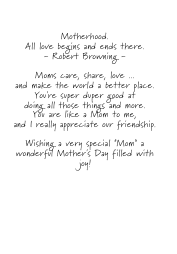 Motherhood.
All love begins and ends there.
- Robert Browning -
Moms care, share, love ...
and make the world a better place.
You're super duper good at
doing all those things and more.
You are like a Mom to me,
and I really appreciate our friendship.
Wishing a very special "Mom" a
wonderful Mother's Day filled with
joy!